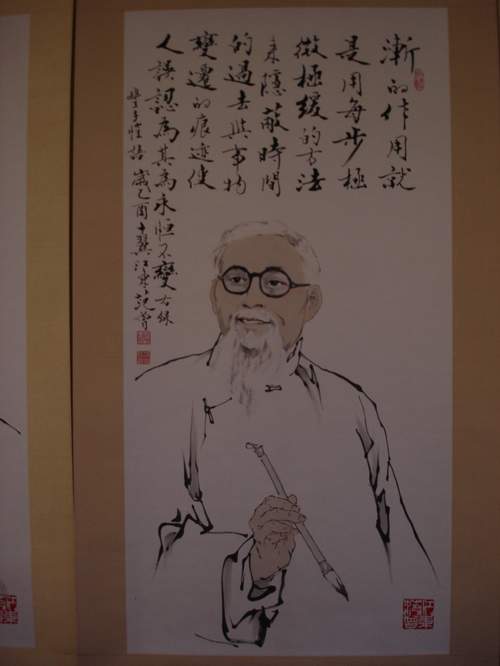 漸的作用就
是用每步極
微極緩的方法
来隱蔽時間
的過去與事物
變遷的痕迹使
人誤認為其為永恒不變右録
豐子愷語 歲乙酉十翼江